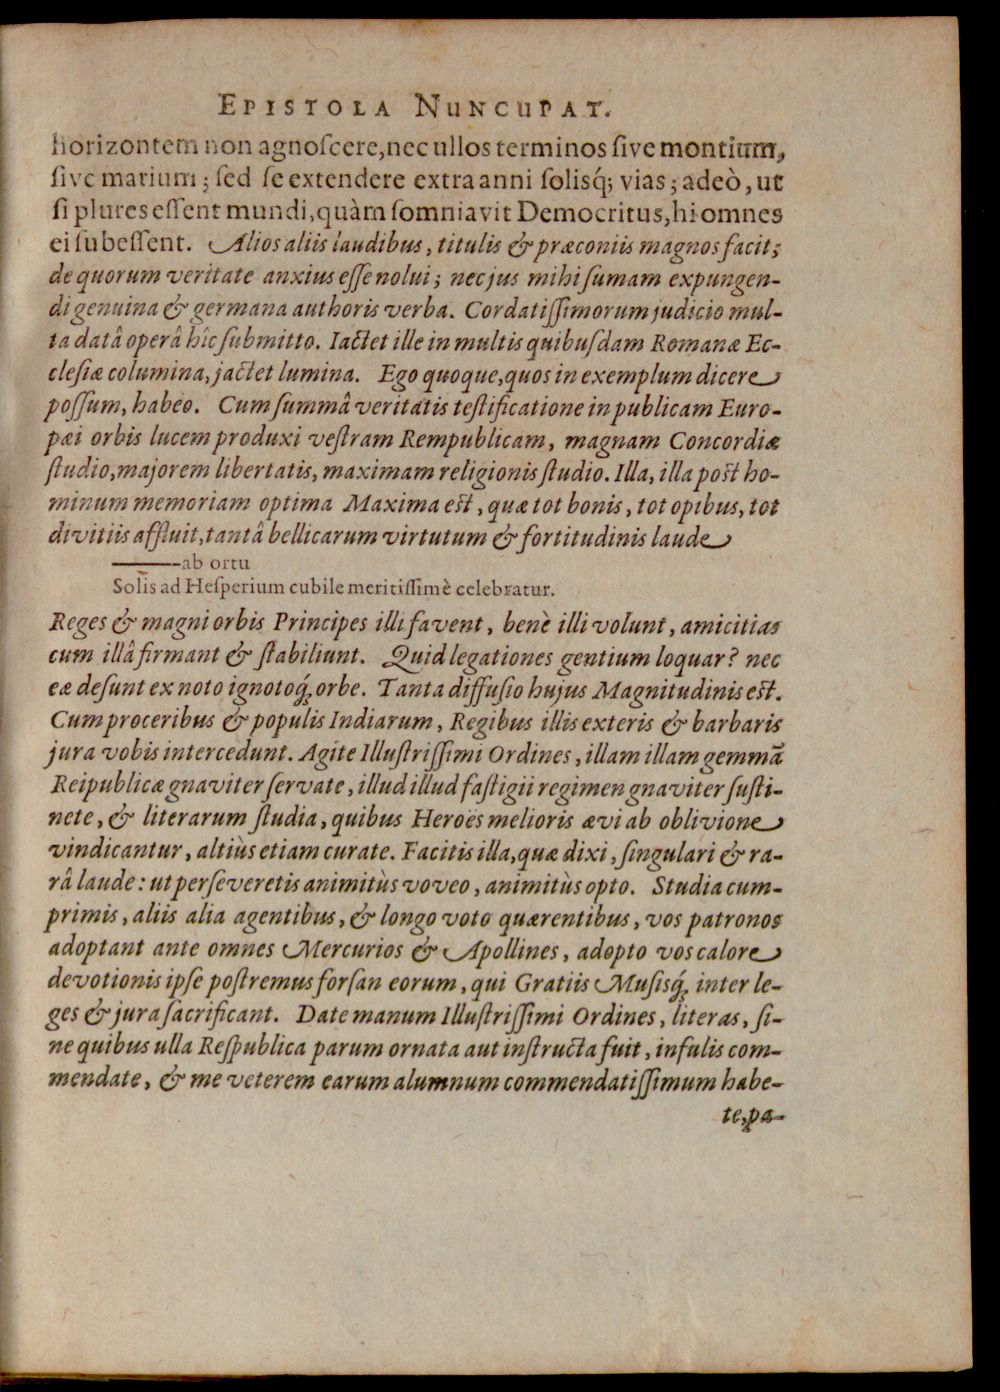 EPISTOLA NUNCUPAT.
horizontem non agnoſcere, nec ullos terminos ſive montium,
ſive marium; ſed ſe extendere extra anni ſolisq; vias; adeò, ut
ſi plures eſſent mundi, quàm ſomniavit Democritus, hi omnes
ei ſubeſſent. Alios aliis laudibus, titulis & præconiis magnos facit;
de quorum veritate anxius eſſe nolui; nec jus mihi ſumam expungen-
di genuina & germana authoris verba. Cordatiſſimorum judicio mul-
ta datâ operâ hîc ſubmitto. Iactet ille in multis quibuſdam Romanæ Ec-
cleſiæ columina, jactet lumina. Ego quoque, quos in exemplum dicere
poſſum, habeo. Cum ſummâ veritatis teſtificatione in publicam Euro-
pæi orbis lucem produxi veſtram Rempublicam, magnam Concordiæ
ſtudio, majorem libertatis, maximam religionis ſtudio. Illa, illa poſt ho-
minum memoriam optima Maxima eſt, quæ tot bonis, tot opibus, tot
divitiis affluit, tantâ bellicarum virtutum & fortitudinis laude
———ab ortu
Solis ad Heſperium cubile meritiſſimè celebratur.
Reges & magni orbis Principes illi favent, benè illi volunt, amicitias
cum illâ firmant & ſtabiliunt. Quid legationes gentium loquar? nec
eæ deſunt ex noto ignotoq́; orbe. Tanta diffuſio hujus Magnitudinis eſt.
Cum proceribus & populis Indiarum, Regibus illis exteris & barbaris
jura vobis intercedunt. Agite Illuſtriſſimi Ordines, illam illam gemmā
Reipublicæ gnaviter ſervate, illud illud faſtigii regimen gnaviter ſuſti-
nete, & literarum ſtudia, quibus Heroës melioris ævi ab oblivione
vindicantur, altiùs etiam curate. Facitis illa, quæ dixi, ſingulari & ra-
râ laude: ut perſeveretis animitùs voveo, animitùs opto. Studia cum-
primis, aliis alia agentibus, & longo voto quærentibus, vos patronos
adoptant ante omnes Mercurios & Apollines, adopto vos calore
devotionis ipſe poſtremus forſan eorum, qui Gratiis Muſisq́; inter le-
ges & jura ſacrificant. Date manum Illuſtriſſimi Ordines, literas, ſi-
ne quibus ulla Reſpublica parum ornata aut inſtructa fuit, infulis com-
mendate, & me veterem earum alumnum commendatiſſimum habe-
te, pa-